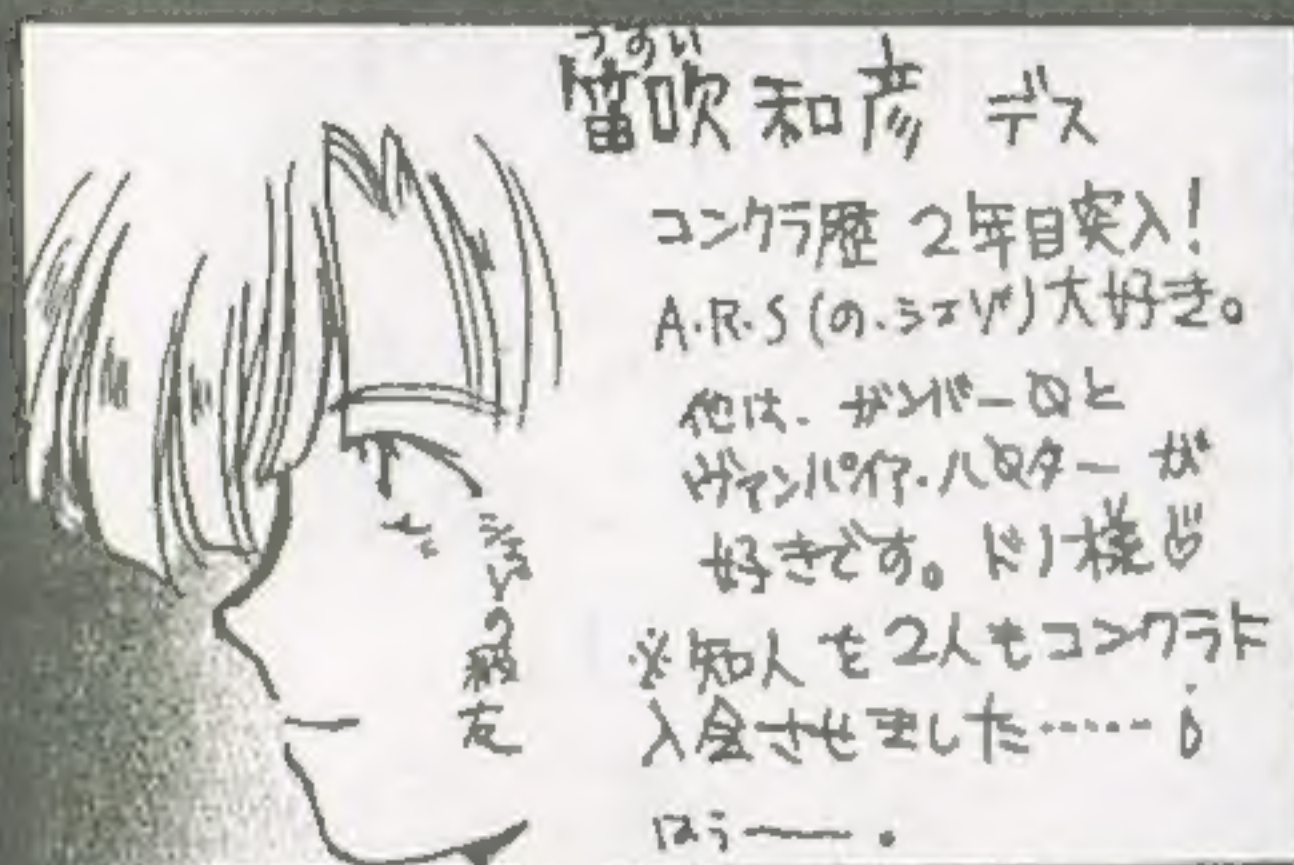 うすい
笛吹 和彦 デス
コンクラ歴 2年目突入!
A・R・S(の・シェゾ)大好き。
他は、ガンバーØと
ヴァンパイア・ハØターが
好きです。ドノ様♡
※知人を2人もコンクラに
入会させました……
はぅ——。
シェゾの
友